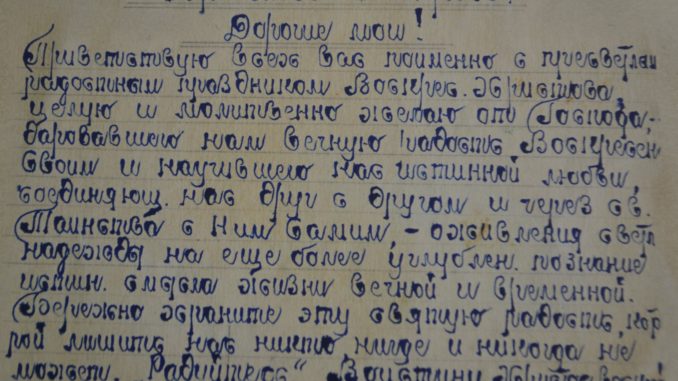 Дорогие мои!
Приветствую всех вас поименно с пресветлым
радостным праздником Воскрес. Христова,
целую и молитвенно желаю от Господа,
даровавшего нам вечную радость Воскресен
своим и научившего нас истинной любви,
соединяющ. нас друг с другом и через св.
Таинства с Ним Самим, - оживления светл
надежды на еще более углублен. познание
истин. смысла жизни вечной и временной.
Бережно храните эту святую радость, кот
рой лишить нас никто нигде и никогда не
может. "Радуйтесь" Воистину Христос